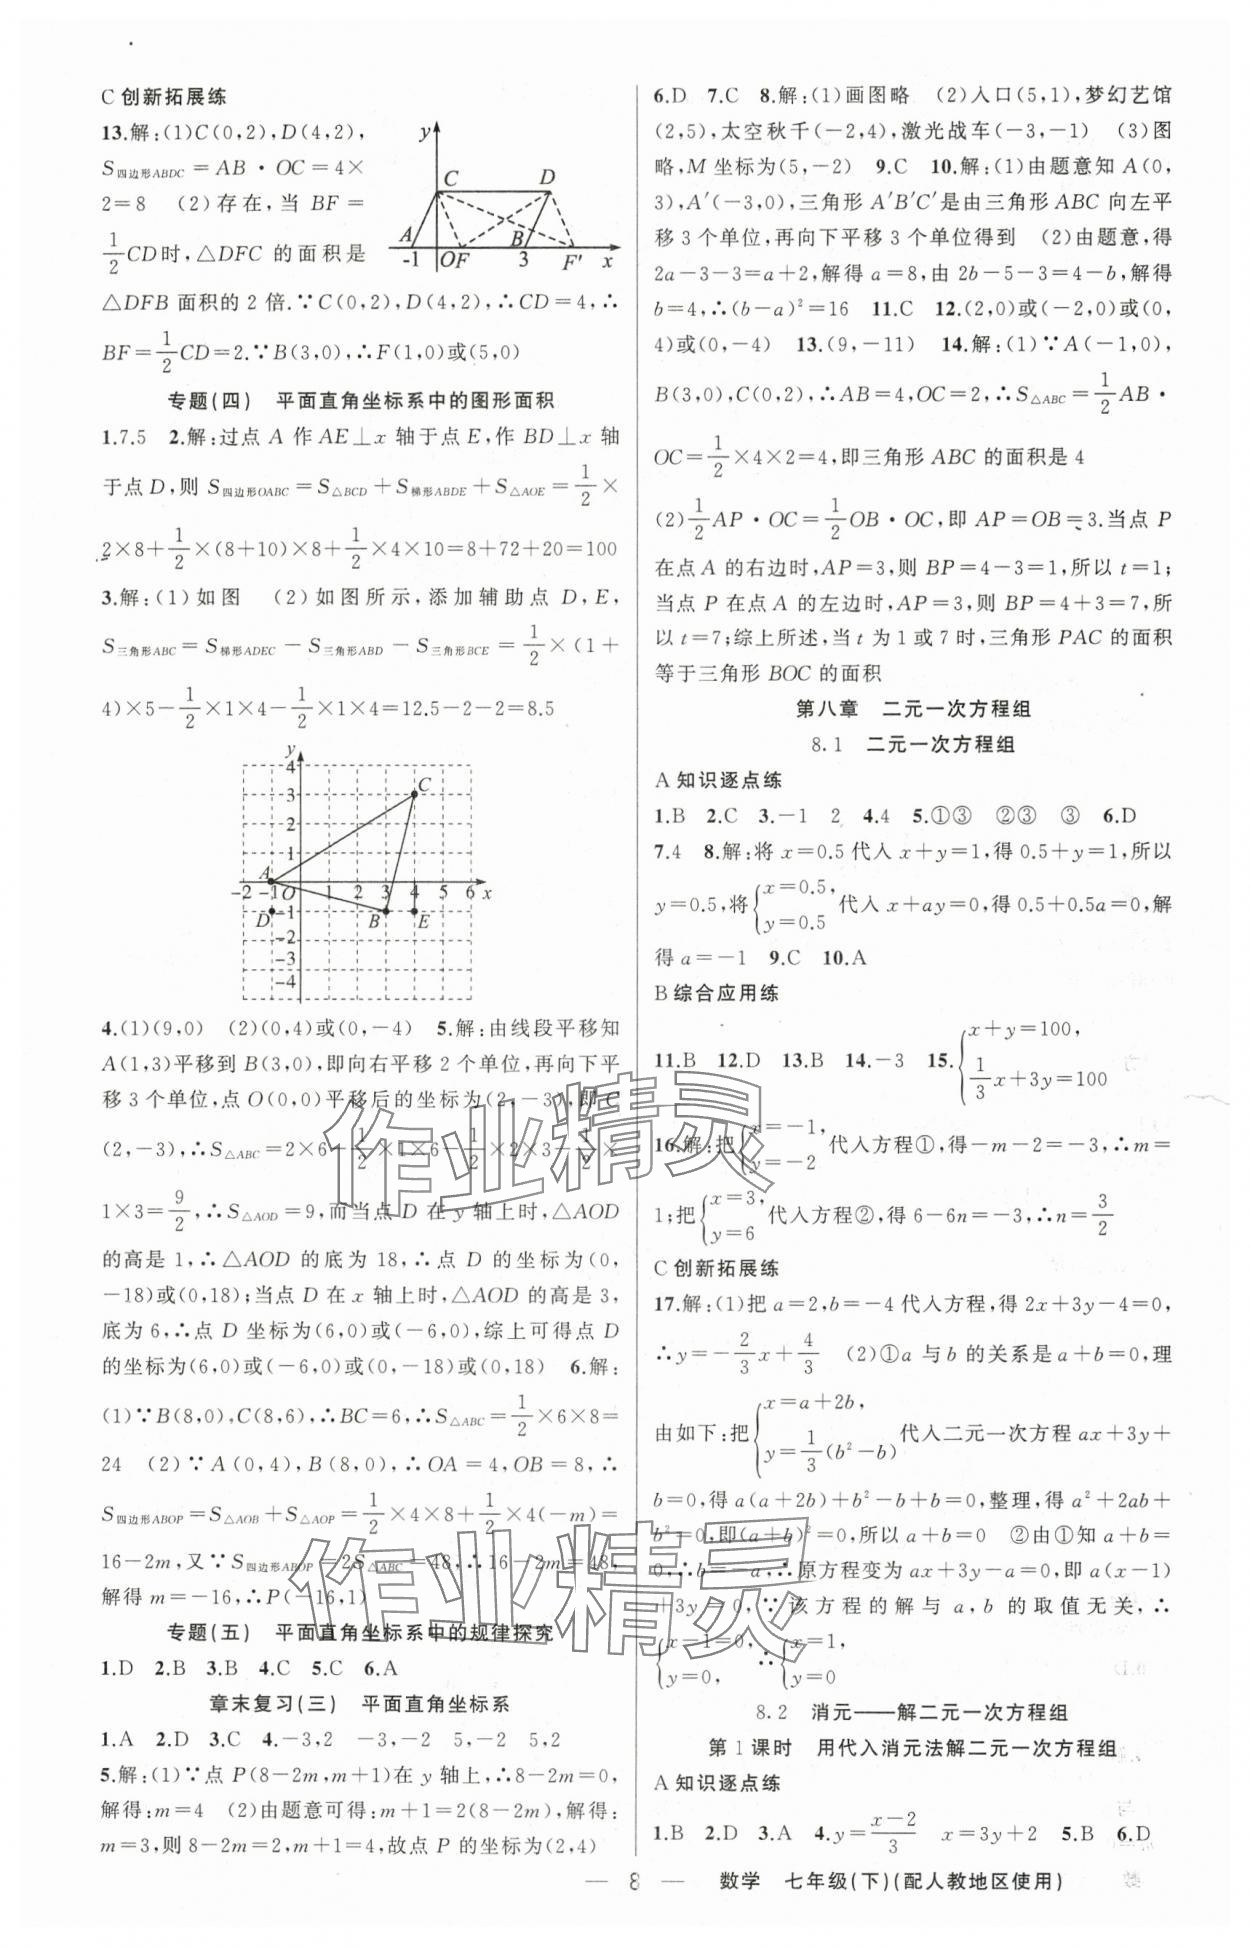 C 创新拓展练
13.解:(1)C(0,2),D(4,2),
S四边形ABDC=AB·OC=4×
2=8 (2)存在,当 BF=
1/2CD时,△DFC 的面积是
△DFB 面积的 2 倍.∵C(0,2),D(4,2),∴CD=4,∴
BF=1/2CD=2.∵B(3,0),∴F(1,0)或(5,0)
y
C D
A B
-1 O F 3 F′ x
专题(四) 平面直角坐标系中的图形面积
1.7.5 2.解:过点 A 作 AE⊥x 轴于点 E,作 BD⊥x 轴
于点 D,则 S四边形OABC=S△BCD+S梯形ABDE+S△AOE=1/2×
2×8+1/2×(8+10)×8+1/2×4×10=8+72+20=100
3.解:(1)如图 (2)如图所示,添加辅助点 D,E,
S三角形ABC=S梯形ADEC-S三角形ABD-S三角形BCE=1/2×(1+
4)×5-1/2×1×4-1/2×1×4=12.5-2-2=8.5
y
4
3 C
2
1
A
-2 -1 O 1 2 3 4 5 6 x
D -1 B E
-2
-3
-4
4.(1)(9,0) (2)(0,4)或(0,-4) 5.解:由线段平移知
A(1,3)平移到 B(3,0),即向右平移 2 个单位,再向下平
移 3 个单位,点 O(0,0)平移后的坐标为(2,-3),即 C
(2,-3),∴S△ABC=2×6-1/2×1×6-1/2×2×3-1/2×
1×3=9/2,∴S△AOD=9,而当点 D 在 y 轴上时,△AOD
的高是 1,∴△AOD 的底为 18,∴点 D 的坐标为(0,
-18)或(0,18);当点 D 在 x 轴上时,△AOD 的高是 3,
底为 6,∴点 D 坐标为(6,0)或(-6,0),综上可得点 D
的坐标为(6,0)或(-6,0)或(0,-18)或(0,18) 6.解:
(1)∵B(8,0),C(8,6),∴BC=6,∴S△ABC=1/2×6×8=
24 (2)∵A(0,4),B(8,0),∴OA=4,OB=8,∴
S四边形ABOP=S△AOB+S△AOP=1/2×4×8+1/2×4(-m)=
16-2m,又∵S四边形ABOP=2S△ABC=48,∴16-2m=48,
解得 m=-16,∴P(-16,1)
专题(五) 平面直角坐标系中的规律探究
1.D 2.B 3.B 4.C 5.C 6.A
章末复习(三) 平面直角坐标系
1.A 2.D 3.C 4.-3,2 -3,-2 5,-2 5,2
5.解:(1)∵点 P(8-2m,m+1)在 y 轴上,∴8-2m=0,
解得:m=4 (2)由题意可得:m+1=2(8-2m),解得:
m=3,则 8-2m=2,m+1=4,故点 P 的坐标为(2,4)
6.D 7.C 8.解:(1)画图略 (2)入口(5,1),梦幻艺馆
(2,5),太空秋千(-2,4),激光战车(-3,-1) (3)图
略,M 坐标为(5,-2) 9.C 10.解:(1)由题意知 A(0,
3),A′(-3,0),三角形 A′B′C′是由三角形 ABC 向左平
移 3 个单位,再向下平移 3 个单位得到 (2)由题意,得
2a-3-3=a+2,解得 a=8,由 2b-5-3=4-b,解得
b=4,∴(b-a)²=16 11.C 12.(2,0)或(-2,0)或(0,
4)或(0,-4) 13.(9,-11) 14.解:(1)∵A(-1,0),
B(3,0),C(0,2),∴AB=4,OC=2,∴S△ABC=1/2AB·
OC=1/2×4×2=4,即三角形 ABC 的面积是 4
(2)1/2AP·OC=1/2OB·OC,即 AP=OB=3.当点 P
在点 A 的右边时,AP=3,则 BP=4-3=1,所以 t=1;
当点 P 在点 A 的左边时,AP=3,则 BP=4+3=7,所
以 t=7;综上所述,当 t 为 1 或 7 时,三角形 PAC 的面积
等于三角形 BOC 的面积
第八章 二元一次方程组
8.1 二元一次方程组
A 知识逐点练
1.B 2.C 3.-1 2 4.4 5.①③ ②③ ③ 6.D
7.4 8.解:将 x=0.5 代入 x+y=1,得 0.5+y=1,所以
y=0.5,将{x=0.5, y=0.5 代入 x+ay=0,得 0.5+0.5a=0,解
得 a=-1 9.C 10.A
B 综合应用练
11.B 12.D 13.B 14.-3 15.{x+y=100, 1/3x+3y=100
16.解:把{x=-1, y=-2 代入方程①,得-m-2=-3,∴m=
1;把{x=3, y=6 代入方程②,得 6-6n=-3,∴n=3/2
C 创新拓展练
17.解:(1)把 a=2,b=-4 代入方程,得 2x+3y-4=0,
∴y=-2/3x+4/3 (2)①a 与 b 的关系是 a+b=0,理
由如下:把{x=a+2b, y=1/3(b²-b) 代入二元一次方程 ax+3y+
b=0,得 a(a+2b)+b²-b+b=0,整理,得 a²+2ab+
b²=0,即(a+b)²=0,所以 a+b=0 ②由①知 a+b=
0,∴b=-a,∴原方程变为 ax+3y-a=0,即 a(x-1)
+3y=0,∵该方程的解与 a,b 的取值无关,∴
{x-1=0, y=0, ∴{x=1, y=0
8.2 消元——解二元一次方程组
第 1 课时 用代入消元法解二元一次方程组
A 知识逐点练
1.B 2.D 3.A 4.y=(x-2)/3 x=3y+2 5.B 6.D
— 8 — 数学 七年级(下)(配人教地区使用)
作业精灵
作业精灵